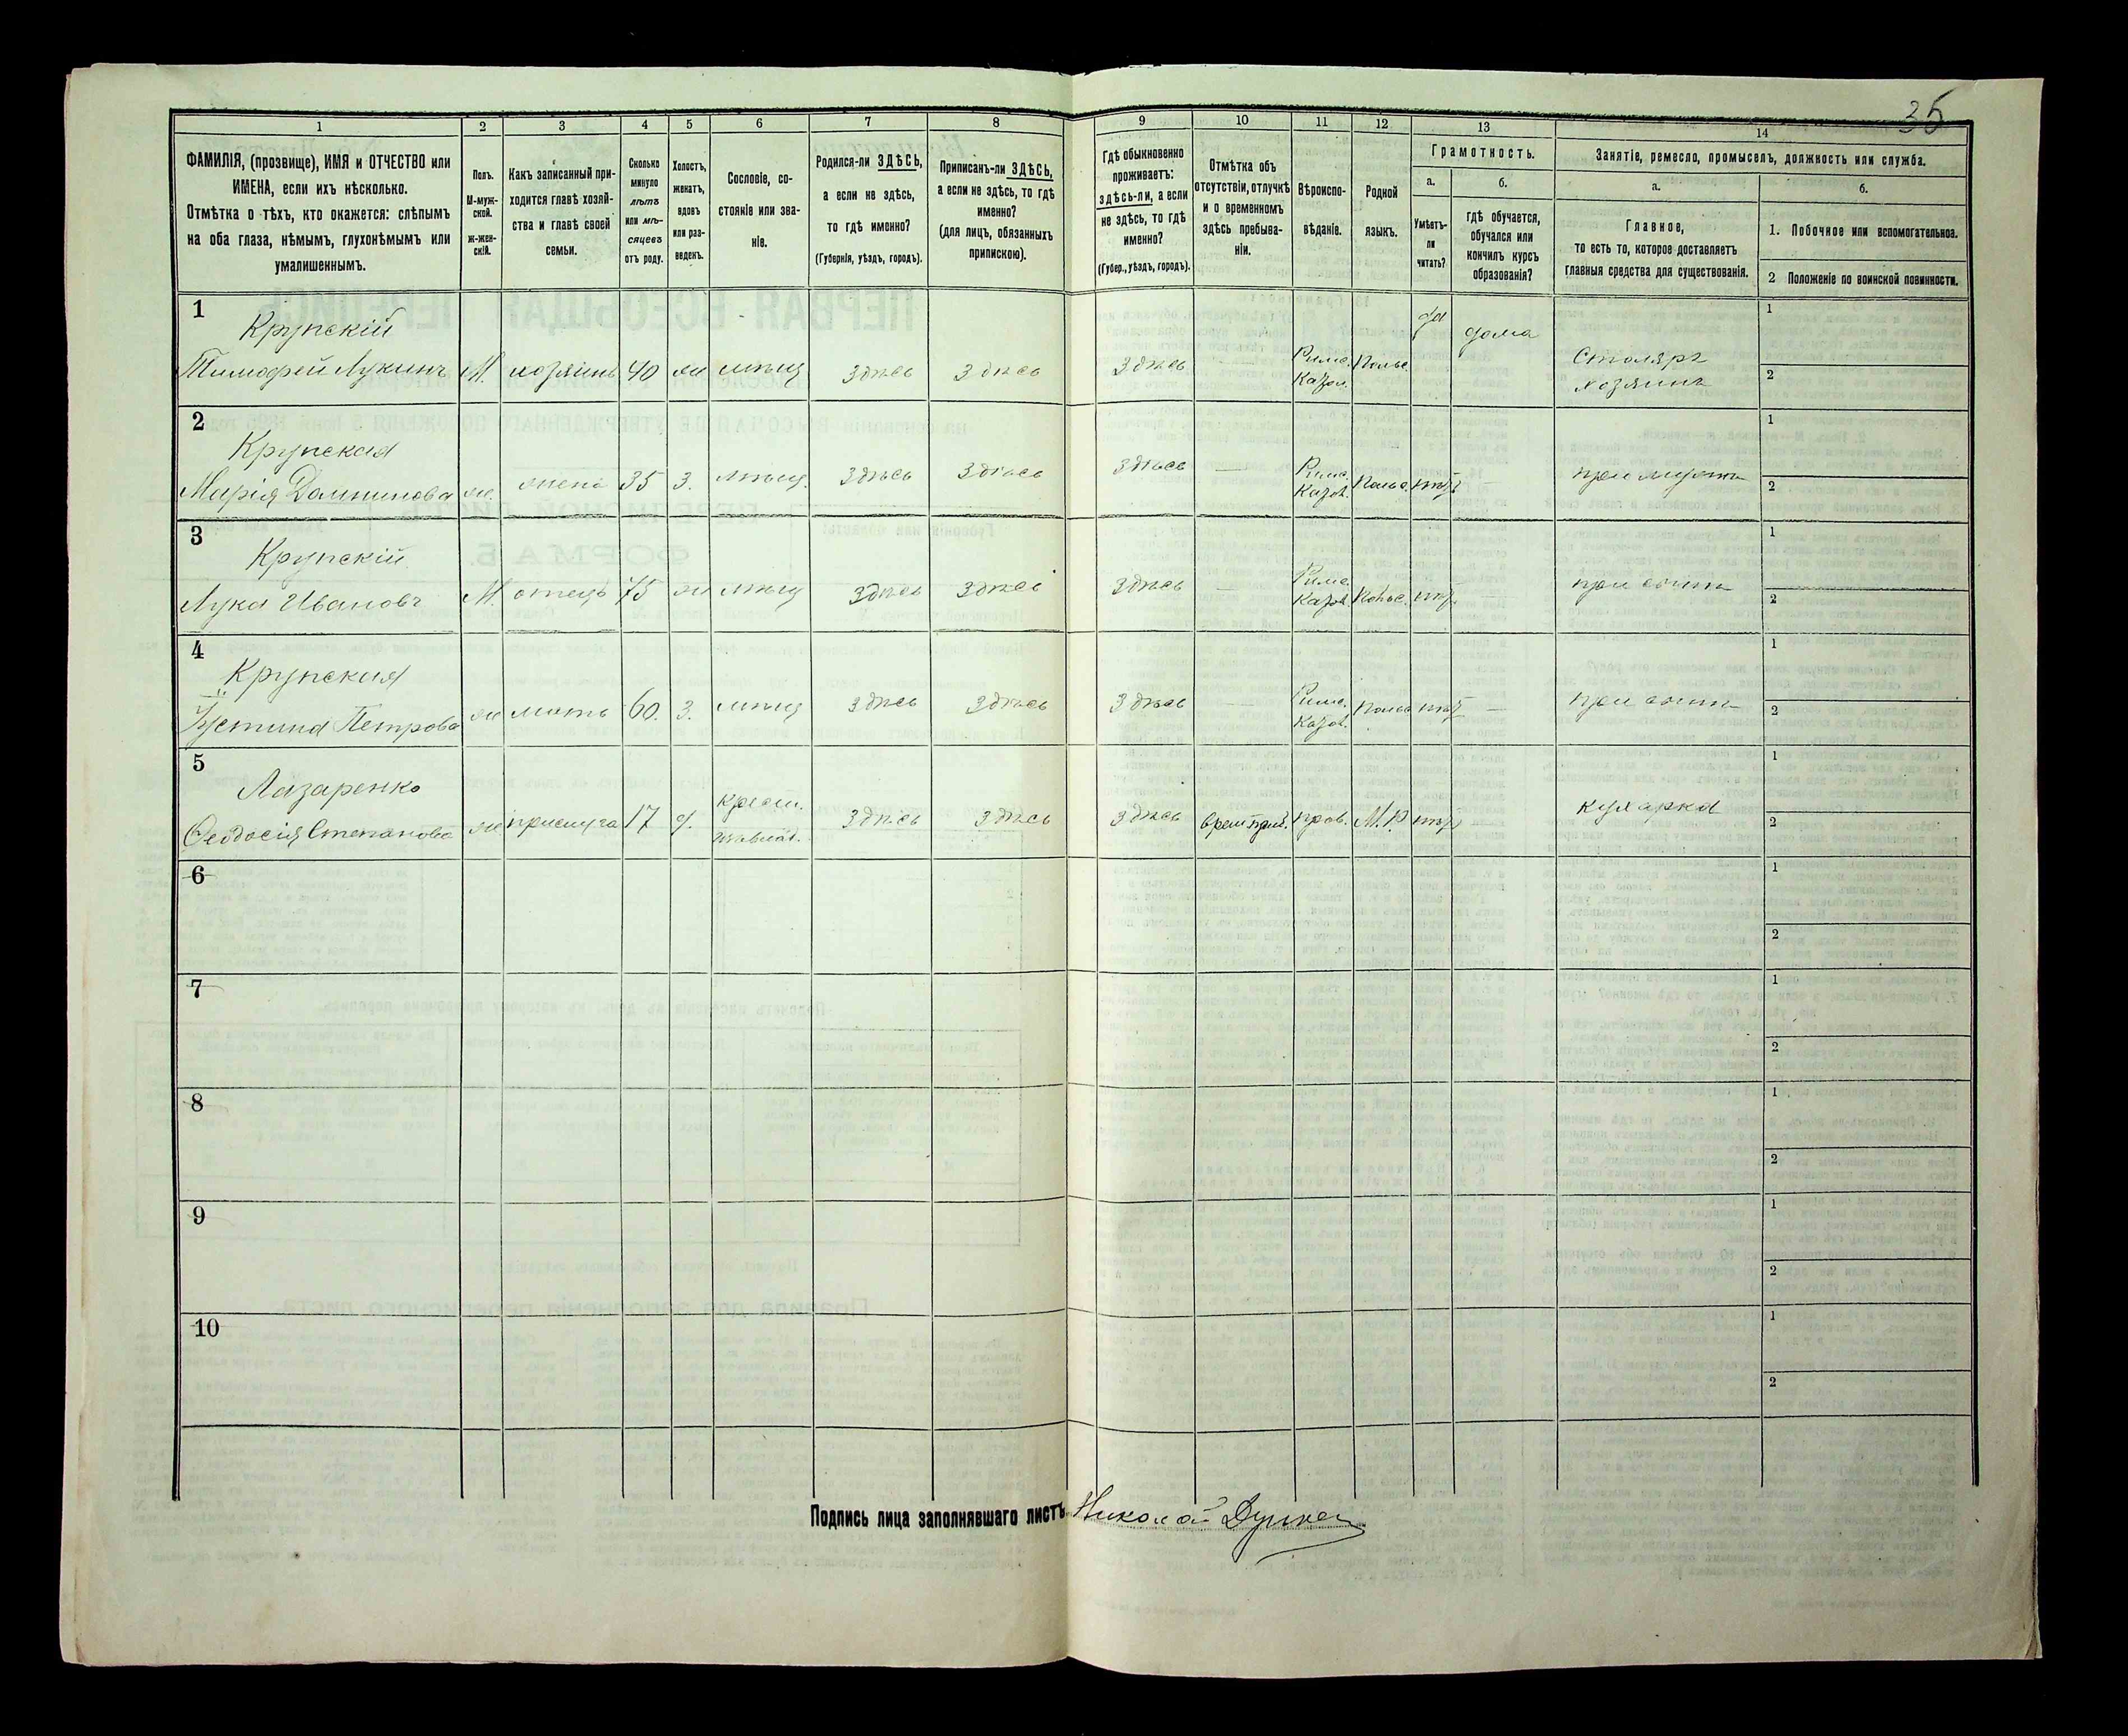 35
1 2 3 4 5 6 7 8 9 10 11 12 13 14
ФАМИЛІЯ, (прозвище), ИМЯ и ОТЧЕСТВО или
ИМЕНА, если ихъ нѣсколько.
Отмѣтка о тѣхъ, кто окажется: слѣпымъ
на оба глаза, нѣмымъ, глухонѣмымъ или
умалишеннымъ.
Полъ.
М-муж-
ской.
ж-жен-
скій.
Какъ записанный при-
ходится главѣ хозяй-
ства и главѣ своей
семьи.
Сколько
минуло
лѣтъ
или мѣ-
сяцевъ
отъ роду.
Холостъ,
женатъ,
вдовъ
или раз-
веденъ.
Сословіе, со-
стояніе или зва-
ніе.
Родился-ли ЗДѢСЬ,
а если не здѣсь,
то гдѣ именно?
(Губернія, уѣздъ, городъ).
Приписанъ-ли ЗДѢСЬ,
а если не здѣсь, то гдѣ
именно?
(для лицъ, обязанныхъ
припискою).
Гдѣ обыкновенно
проживаетъ:
здѣсь-ли, а если
не здѣсь, то гдѣ
именно?
(Губер., уѣздъ, городъ).
Отмѣтка объ
отсутствіи, отлучкѣ
и о временномъ
здѣсь пребыва-
ніи.
Вѣроиспо-
вѣданіе.
Родной
языкъ.
Грамотность.
а.
Умѣетъ-
ли
читать?
б.
гдѣ обучается,
обучался или
кончилъ курсъ
образованія?
Занятіе, ремесло, промыселъ, должность или служба.
а.
Главное,
то есть то, которое доставляетъ
главныя средства для существованія.
б.
1. Побочное или вспомогательное.
2 Положеніе по воинской повинности.
1 Крупскій да дома 1
Тимофей Лукинъ М. хозяинъ 40 ж мѣщ здѣсь здѣсь здѣсь Римс. Польс. Столяръ
Катол. хозяинъ 2
2 Крупская 1
Марія Доминикова ж. жена 35 з. мѣщ. здѣсь здѣсь здѣсь — Римс. Польс. нѣтъ — при мужѣ
Катол. 2
3 Крупскій 1
Лука Ивановъ М. отецъ 75 ж мѣщ здѣсь здѣсь здѣсь — Римс. Польс. нѣт. — при сынѣ
Катол. 2
4 Крупская 1
Устина Петрова ж мать 60. з. мѣщ здѣсь здѣсь здѣсь — Римс. Польс нѣтъ — при сынѣ
Катол. 2
5 Лазаренко крест. 1
Феодосія Степанова ж прислуга 17 д. здѣсь здѣсь здѣсь прав. М.Р нѣтъ — кухарка 2
6 1
2
7 1
2
8 1
2
9 1
2
10 1
2
Подпись лица заполнявшаго листъ Николай